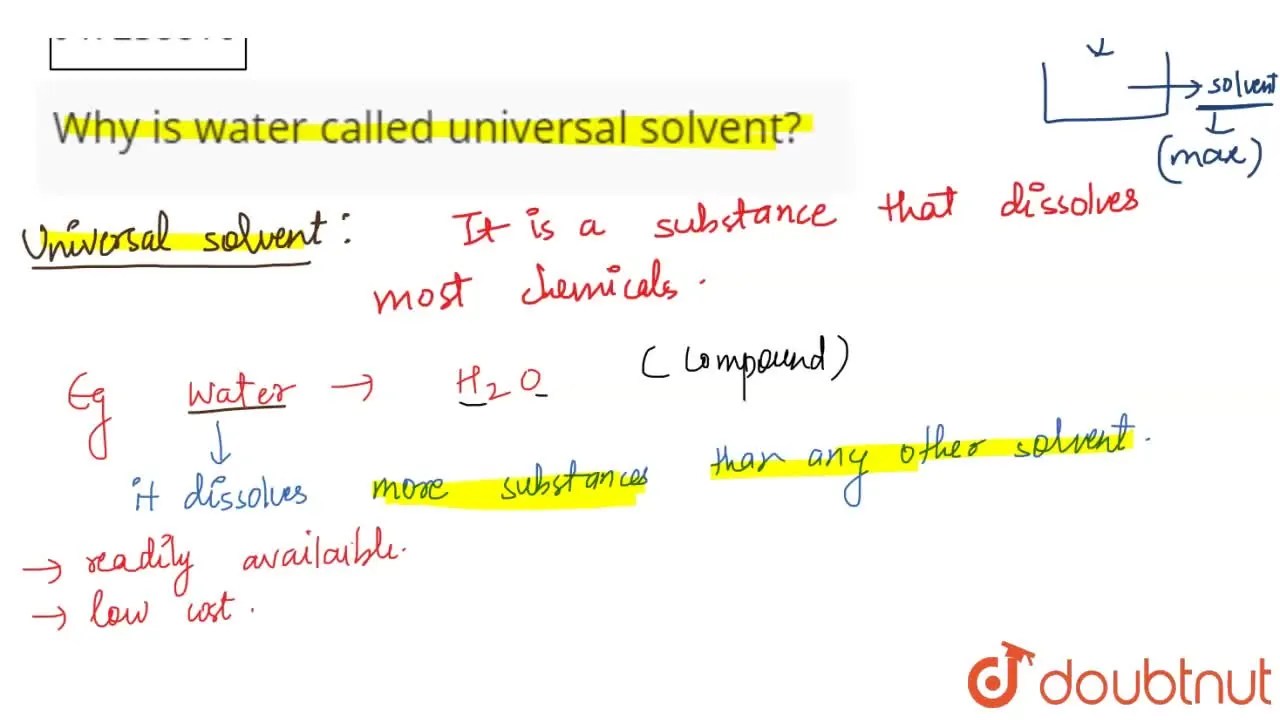 Why is water called universal solvent?
solvent
(max)
Universal solvent : It is a substance that dissolves
most chemicals.
Eg water → H2O (compound)
it dissolves more substances than any other solvent.
→ readily available.
→ low cost.
doubtnut